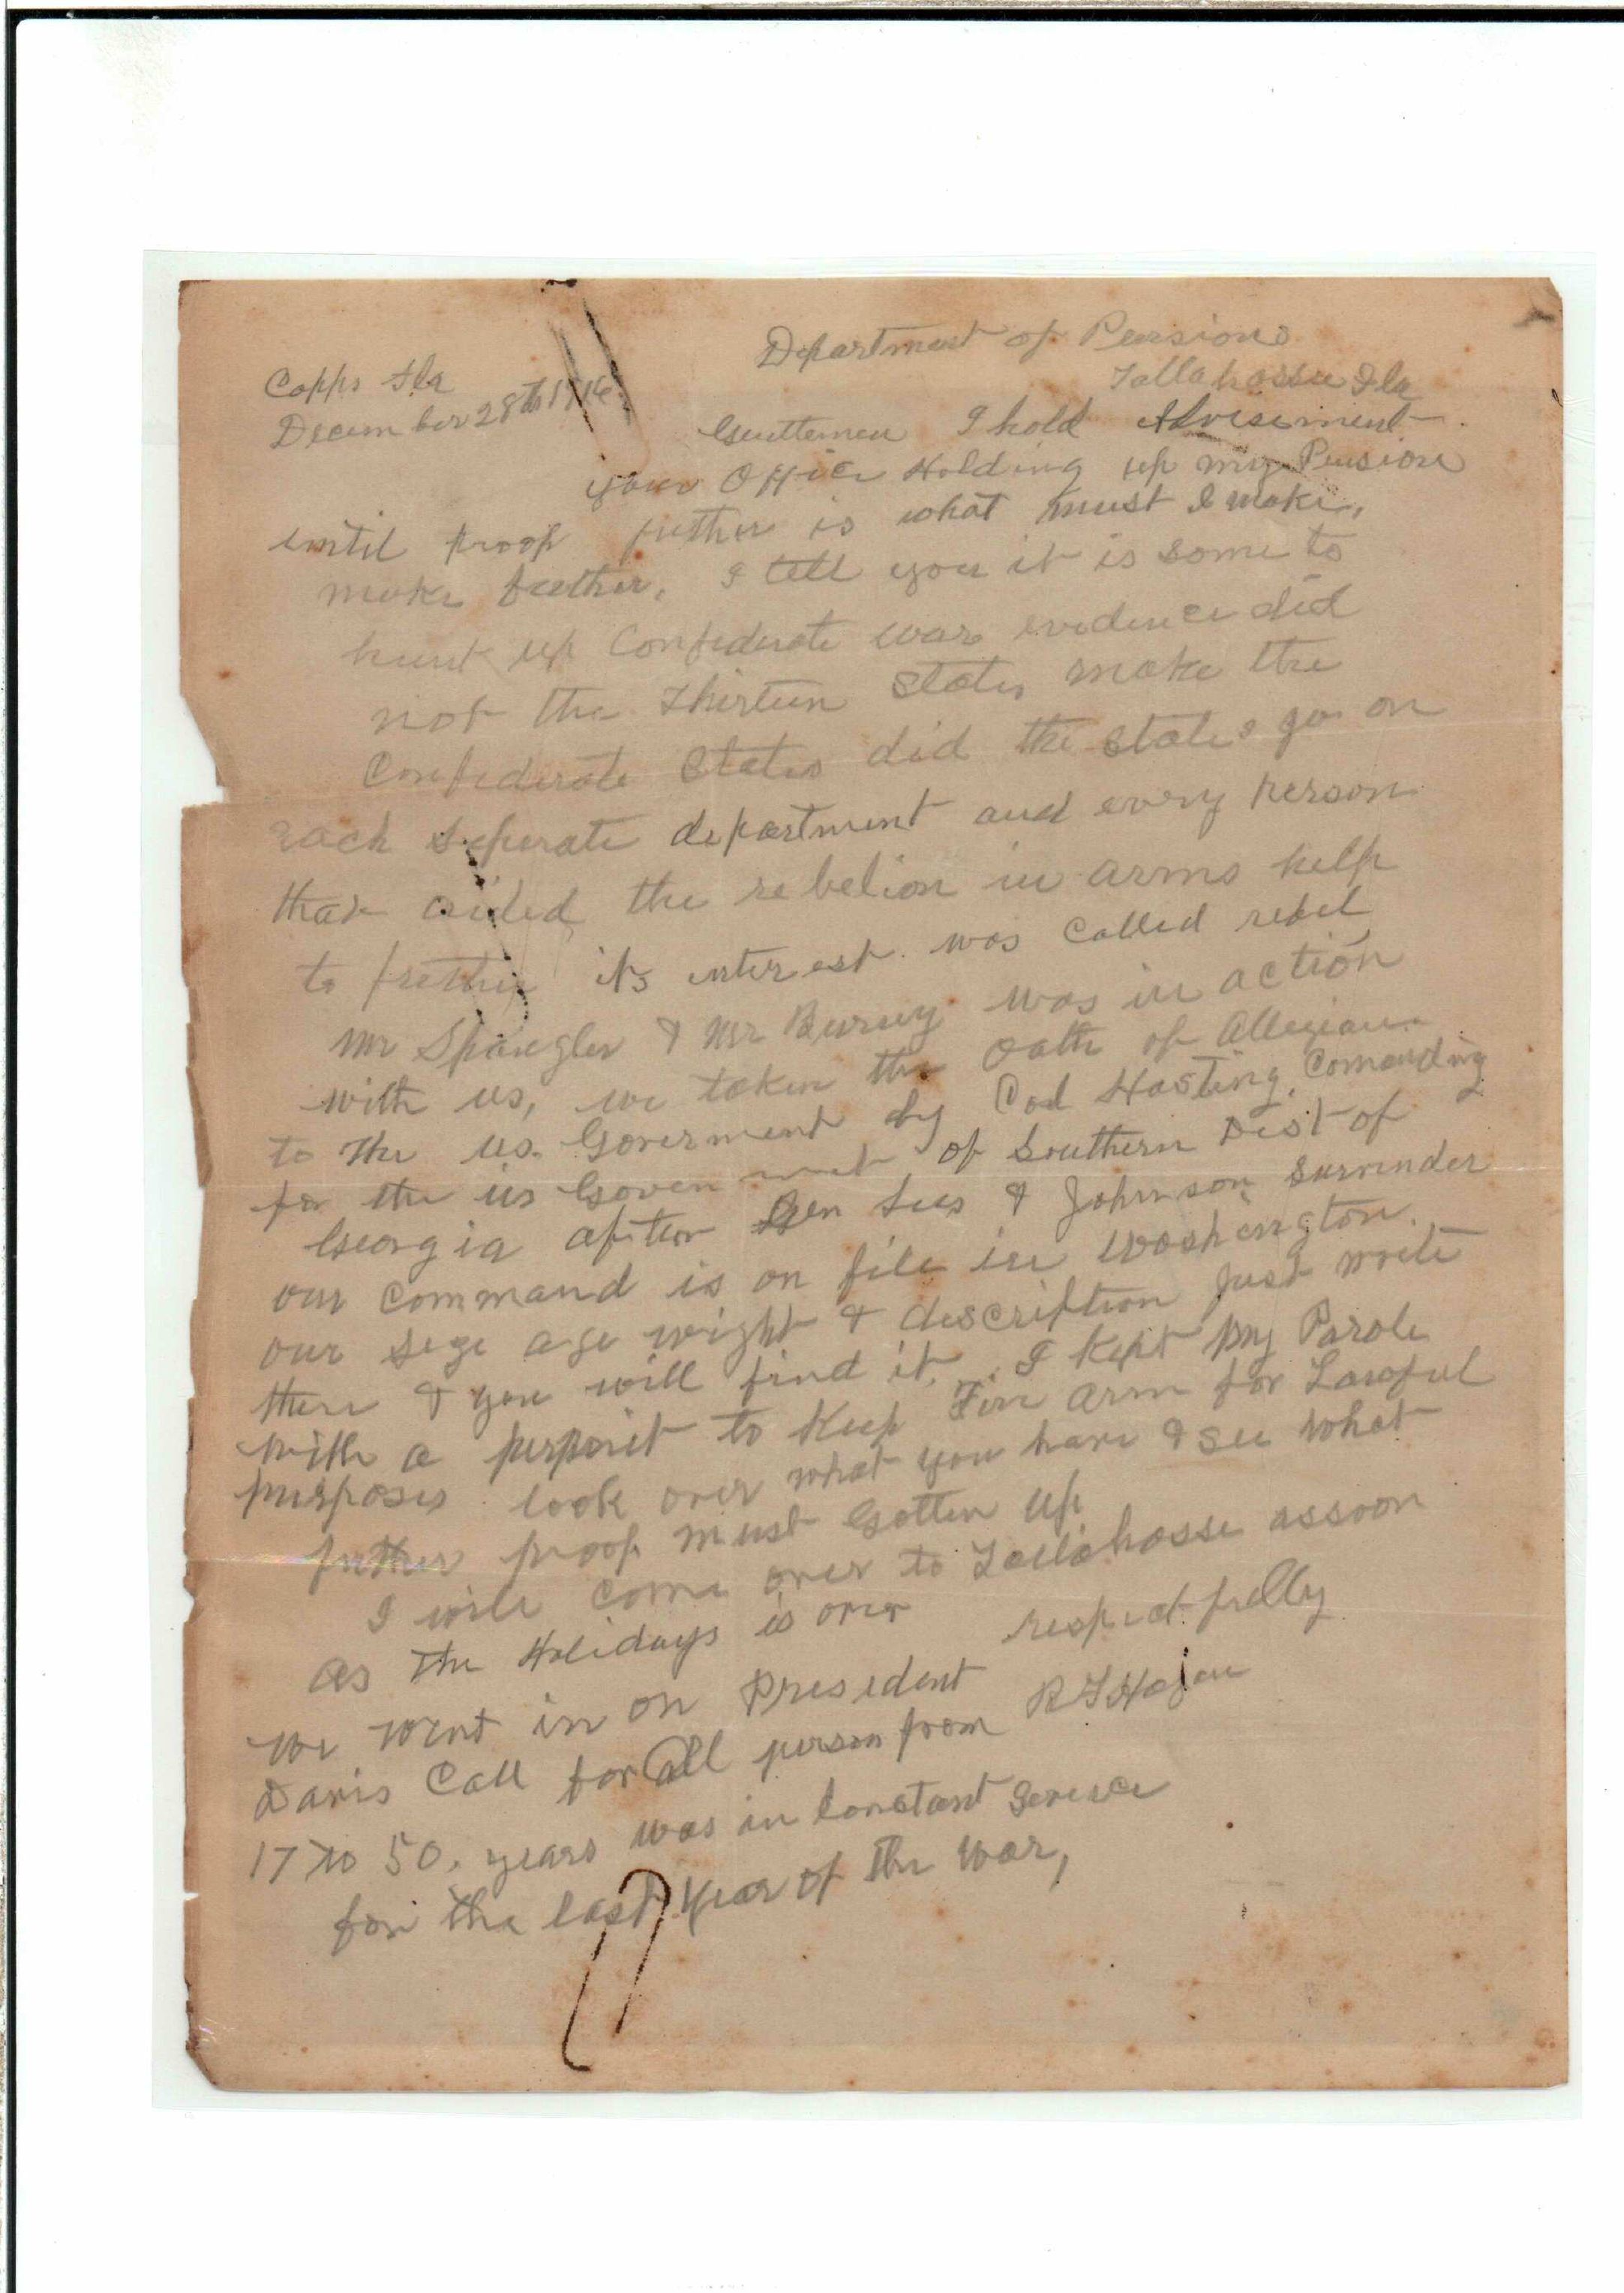 Department of Pensions
Capps Fla
Tallahassee Fla
December 28th 1916
Gentlemen I hold Advisement
your Office Holding up my Pension
until proof futher is what must I make,
make futher, I tell you it is some to
hunt up Confederate war evidence did
not the Thirteen States make the
Confederate States did the States go on
each seperate department and every person
that aided the rebelion in arms help
to further its interest was called rebel
Mr Spangler & Mr Burney was in action
with us, we taken the Oath of Allegiance
to the us. Goverment by Col Hasting, Comanding
for the us Goverment of Southern Dist of
Georgia after Gen Lees & Johnson Surrender
our Command is on file in Washington.
our sege age wight & description Just write
there & you will find it, I Kept my Parole
with a to Keep Fire arm for Lawful
purposes look over what you have & see what
futher proof must Gotten up
I will come over to Tallahasse assoon
as the Holidays is over
respectfully
we went in on President
R Hagan
Davis Call for all person from
17 to 50. years was in Constant Service
for the last Year of the War,